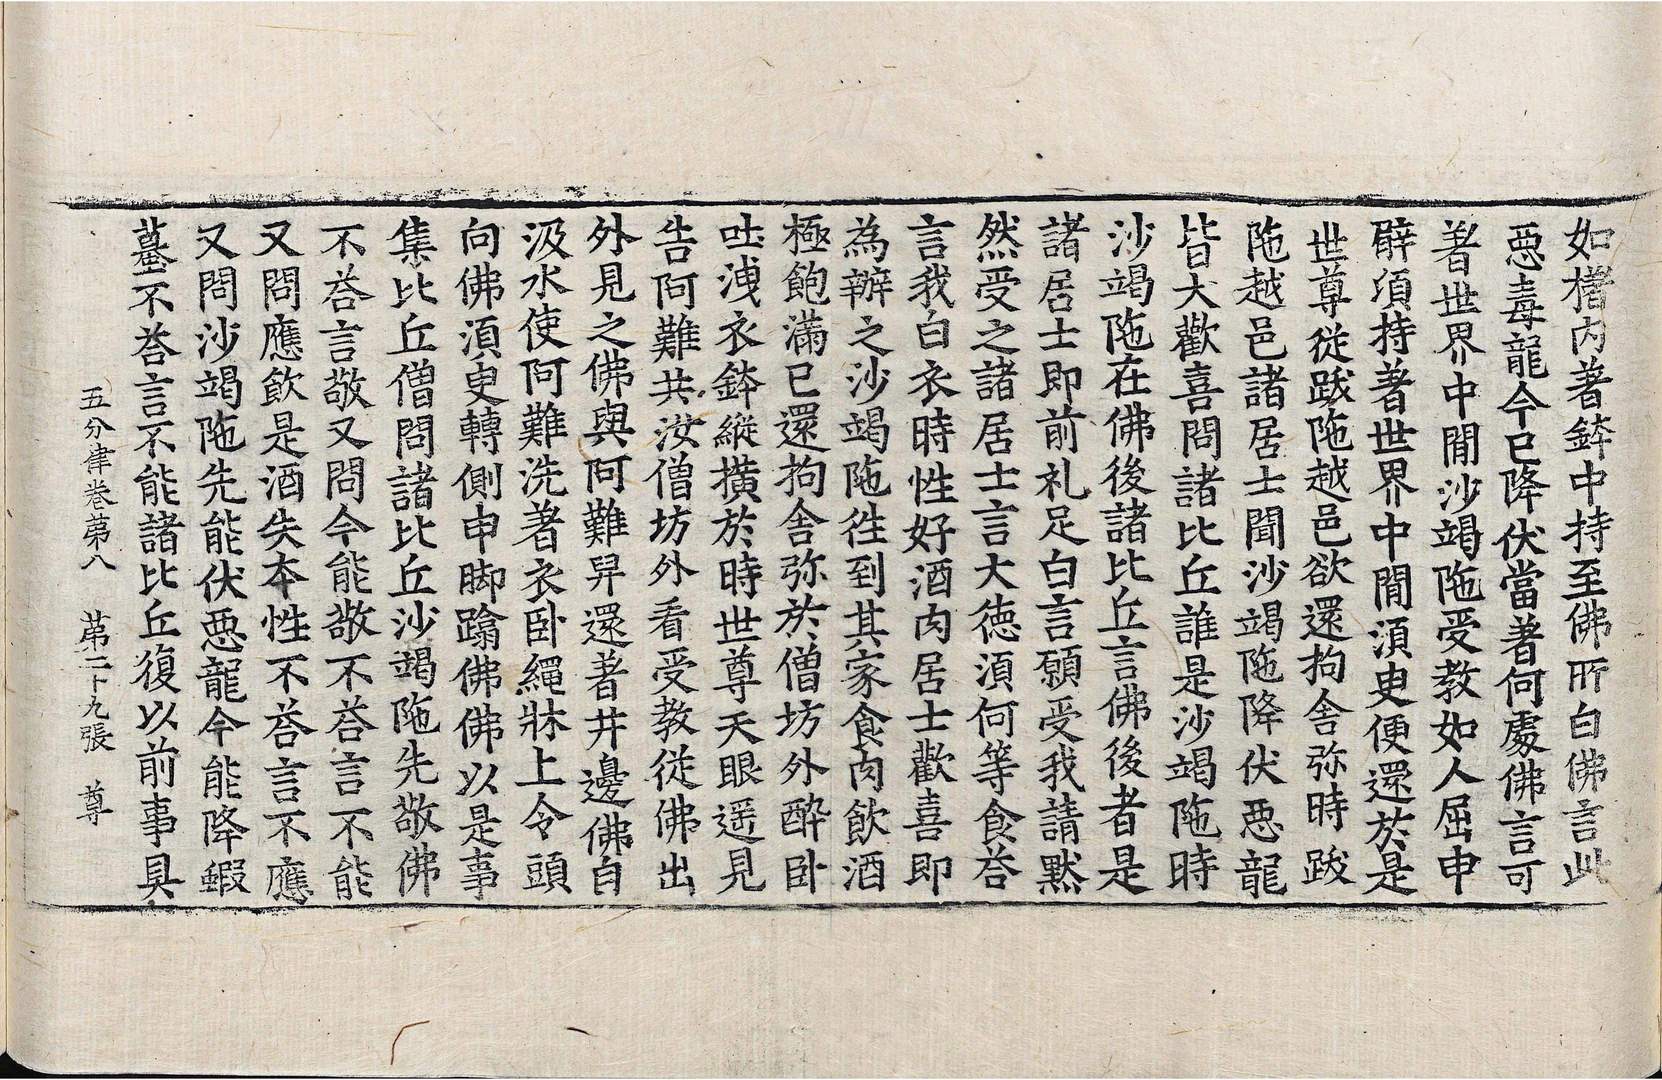 如襵內著鉢中持至佛所白佛言此
惡毒龍今已降伏當著何處佛言可
著世界中閒沙竭陁受教如人屈申
臂須持著世界中閒須臾便還於是
世尊從跋陁越邑欲還拘舍弥時跋
陁越邑諸居士聞沙竭陁降伏惡龍
皆大歡喜問諸比丘誰是沙竭陁時
沙竭陁在佛後諸比丘言佛後者是
諸居士即前礼足白言願受我請默
然受之諸居士言大德須何等食荅
言我白衣時性好酒肉居士歡喜即
為辦之沙竭陁徃到其家食肉飲酒
極飽滿已還拘舍弥於僧坊外醉卧
吐洩衣鉢縱横於時世尊天眼遥見
告阿難共汝僧坊外看受教從佛出
外見之佛與阿難舁還著井邊佛自
汲水使阿難洗著衣卧繩牀上令頭
向佛須臾轉側申脚蹹佛佛以是事
集比丘僧問諸比丘沙竭陁先敬佛
不荅言敬又問今能敬不荅言不能
又問應飲是酒失本性不荅言不應
又問沙竭陁先能伏惡龍今能降蝦
蟇不荅言不能諸比丘復以前事具
五分律卷苐八 苐二十九張 尊